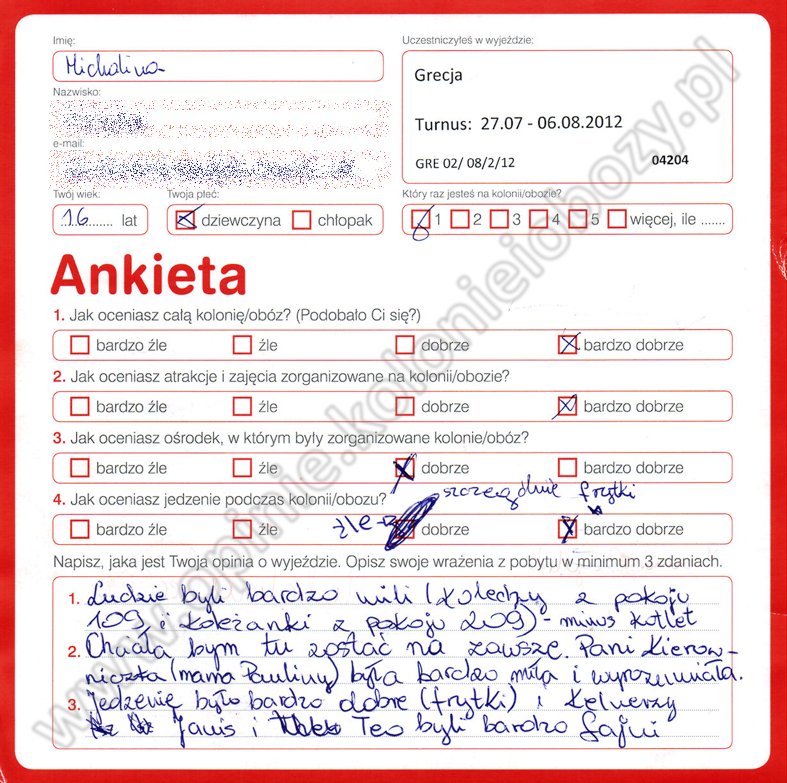 Imię:
Michalina
Nazwisko:
e-mail:
Twój wiek:
16 lat
Twoja płeć:
dziewczyna chłopak
Uczestniczyłeś w wyjeździe:
Grecja
Turnus: 27.07 - 06.08.2012
GRE 02/ 08/2/12 04204
Który raz jesteś na kolonii/obozie?
1 2 3 4 5 więcej, ile .......
Ankieta
1. Jak oceniasz całą kolonię/obóz? (Podobało Ci się?)
bardzo źle źle dobrze bardzo dobrze
2. Jak oceniasz atrakcje i zajęcia zorganizowane na kolonii/obozie?
bardzo źle źle dobrze bardzo dobrze
3. Jak oceniasz ośrodek, w którym były zorganizowane kolonie/obóz?
bardzo źle źle dobrze bardzo dobrze
4. Jak oceniasz jedzenie podczas kolonii/obozu? szczególnie frytki
bardzo źle źle źle→ dobrze bardzo dobrze
Napisz, jaka jest Twoja opinia o wyjeździe. Opisz swoje wrażenia z pobytu w minimum 3 zdaniach.
1. Ludzie byli bardzo mili (koledzy z pokoju
109, i koleżanki z pokoju 209) - minus kotlet
2. Chciała bym tu zostać na zawsze. Pani Kierow-
niczka (mama Pauliny) była bardzo miła i wyrozumiała.
3. Jedzenie było bardzo dobre (frytki) i Kelnerzy
Janis i Teo byli bardzo fajni
www.opinie.kolonieiobozy.pl